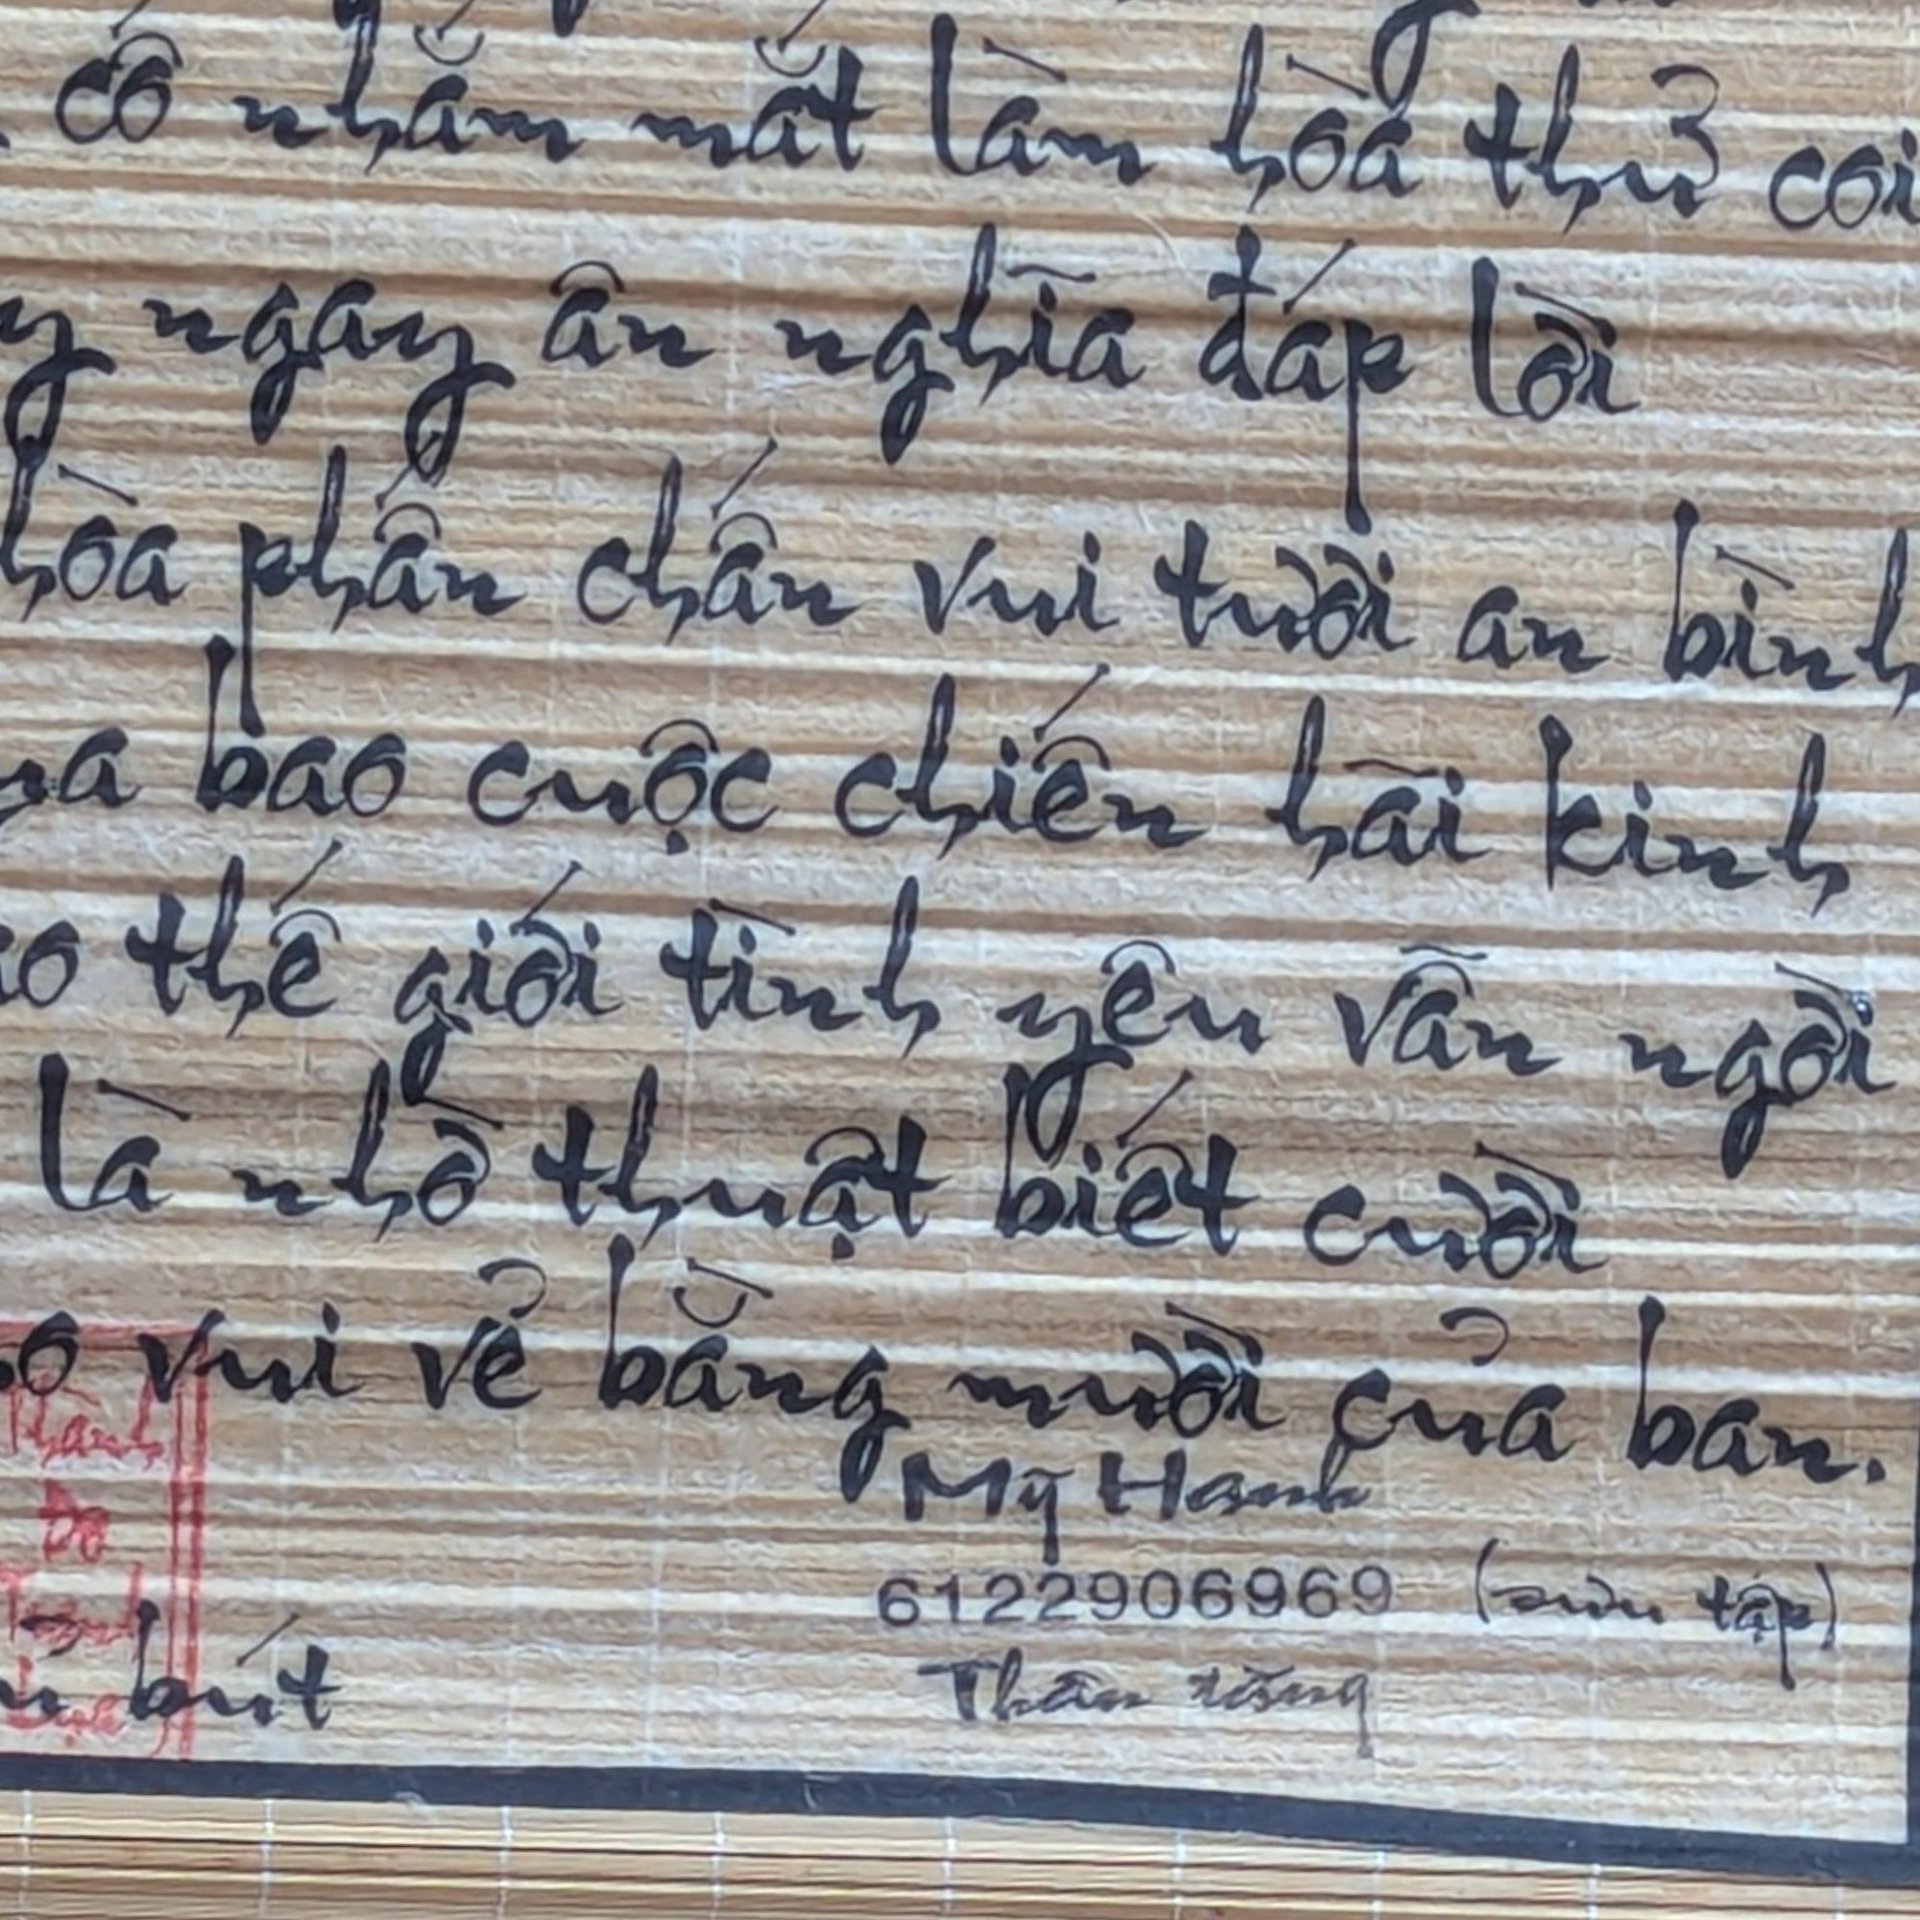 cố nhắm mắt làm hòa thử coi
ngay ân nghĩa đáp lời
hòa phấn chấn vui tười an bình
bao cuộc chiến hãi kinh
thế giới tình yêu vẫn ngời
là nhờ thuật biết cười
vui vẻ bằng mười của ban.
Mỹ Hanh
6122906969 (sưu tập)
Thân tặng
bút